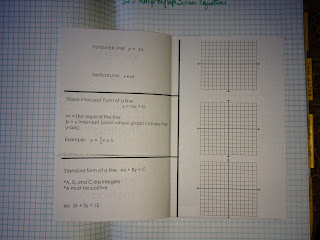 Horizontal Line: y =
Vertical Line: x =
Slope-Intercept form of a line:
y = mx + b
m = the slope of the line
b = y-intercept (point where graph crosses the
y-axis)
Example: y = x + 5
Standard form of a line: Ax + By = C
*A, B, and C are integers
*A must be positive
ex: 2x + 3y = 12